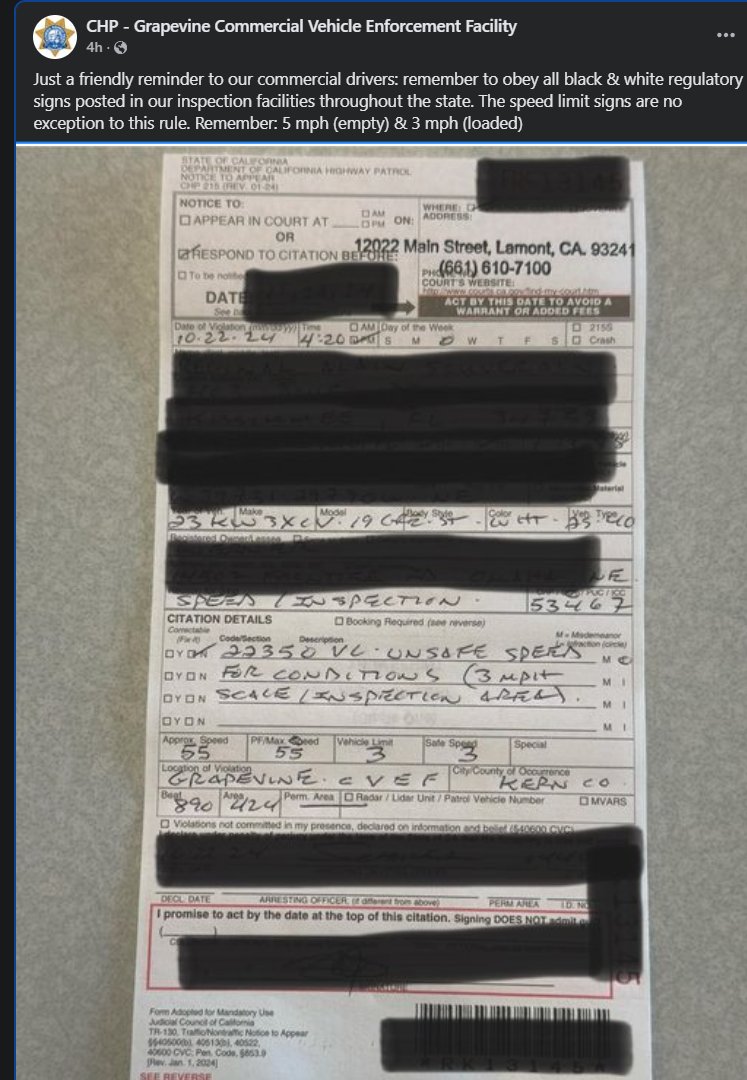 CHP - Grapevine Commercial Vehicle Enforcement Facility
4h ·
Just a friendly reminder to our commercial drivers: remember to obey all black & white regulatory
signs posted in our inspection facilities throughout the state. The speed limit signs are no
exception to this rule. Remember: 5 mph (empty) & 3 mph (loaded)
STATE OF CALIFORNIA
DEPARTMENT OF CALIFORNIA HIGHWAY PATROL
NOTICE TO APPEAR
CHP 215 (REV. 01-24)
NOTICE TO:
WHERE:
APPEAR IN COURT AT AM PM ON:
ADDRESS:
OR
12022 Main Street, Lamont, CA. 93241
RESPOND TO CITATION BEFORE:
(661) 610-7100
To be notified
COURT'S WEBSITE:
http://www.courts.ca.gov/find-my-court.htm
DATE
ACT BY THIS DATE TO AVOID A
WARRANT OR ADDED FEES
Date of Violation (mm/dd/yy) Time AM PM Day of the Week 215S
10.22.24 4:20 S M W T F S Crash
Material
Make Model Body Style Color Veh. Type
23 KW 3X WHT
Registered Owner/Lessee
SPEED / INSPECTION 53467
CITATION DETAILS Booking Required (see reverse)
Correctable (Fix-it) Code/Section Description M = Misdemeanor I = Infraction (circle)
Y N 22350 VC. UNSAFE SPEED M
Y N FOR CONDITIONS (3 MPH M I
Y N SCALE / INSPECTION AREA). M I
Y N M I
Approx. Speed PF/Max. Speed Vehicle Limit Safe Speed Special
55 55 3 3
Location of Violation City/County of Occurrence
GRAPEVINE. CVEF KERN CO
Beat Area Perm. Area Radar / Lidar Unit / Patrol Vehicle Number MVARS
890 424
Violations not committed in my presence, declared on information and belief (§40600 CVC)
DECL. DATE ARRESTING OFFICER, (if different from above) PERM AREA I.D. NO
I promise to act by the date at the top of this citation. Signing DOES NOT admit
SIGNATURE
Form Adopted for Mandatory Use
Judicial Council of California
TR-130, Traffic/Nontraffic Notice to Appear
§§40500(b), 40513(b), 40522,
40600 CVC; Pen. Code, §853.9
[Rev. Jan. 1, 2024]
SEE REVERSE